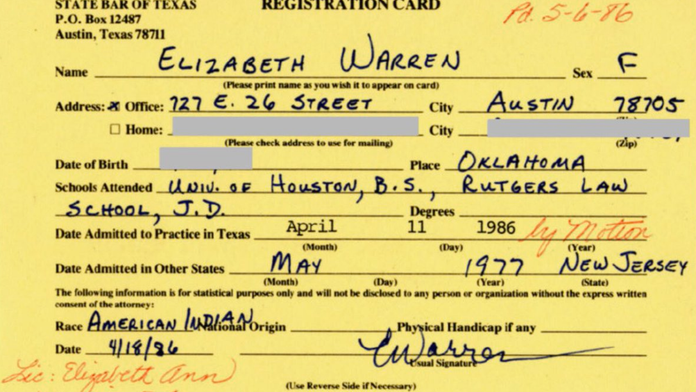 STATE BAR OF TEXAS REGISTRATION CARD
P.O. Box 12487 Pd. 5-6-86
Austin, Texas 78711
Name ELIZABETH WARREN Sex F
(Please print name as you wish it to appear on card)
Address: Office: 727 E. 26 STREET City AUSTIN 78705
Home: City
(Please check address to use for mailing) (Zip)
Date of Birth Place OKLAHOMA
Schools Attended UNIV. OF HOUSTON, B.S., RUTGERS LAW
SCHOOL, J.D. Degrees
Date Admitted to Practice in Texas April 11 1986 by Motion
(Month) (Day) (Year)
Date Admitted in Other States MAY 1977 NEW JERSEY
(Month) (Day) (Year) (State)
The following information is for statistical purposes only and will not be disclosed to any person or organization without the express written
consent of the attorney:
Race AMERICAN INDIAN National Origin Physical Handicap if any
Date 4/18/86 EWarren
Usual Signature
Lic: Elizabeth Ann
(Use Reverse Side if Necessary)